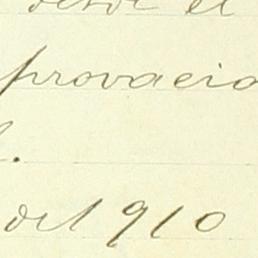 desde el
provacio
del 910